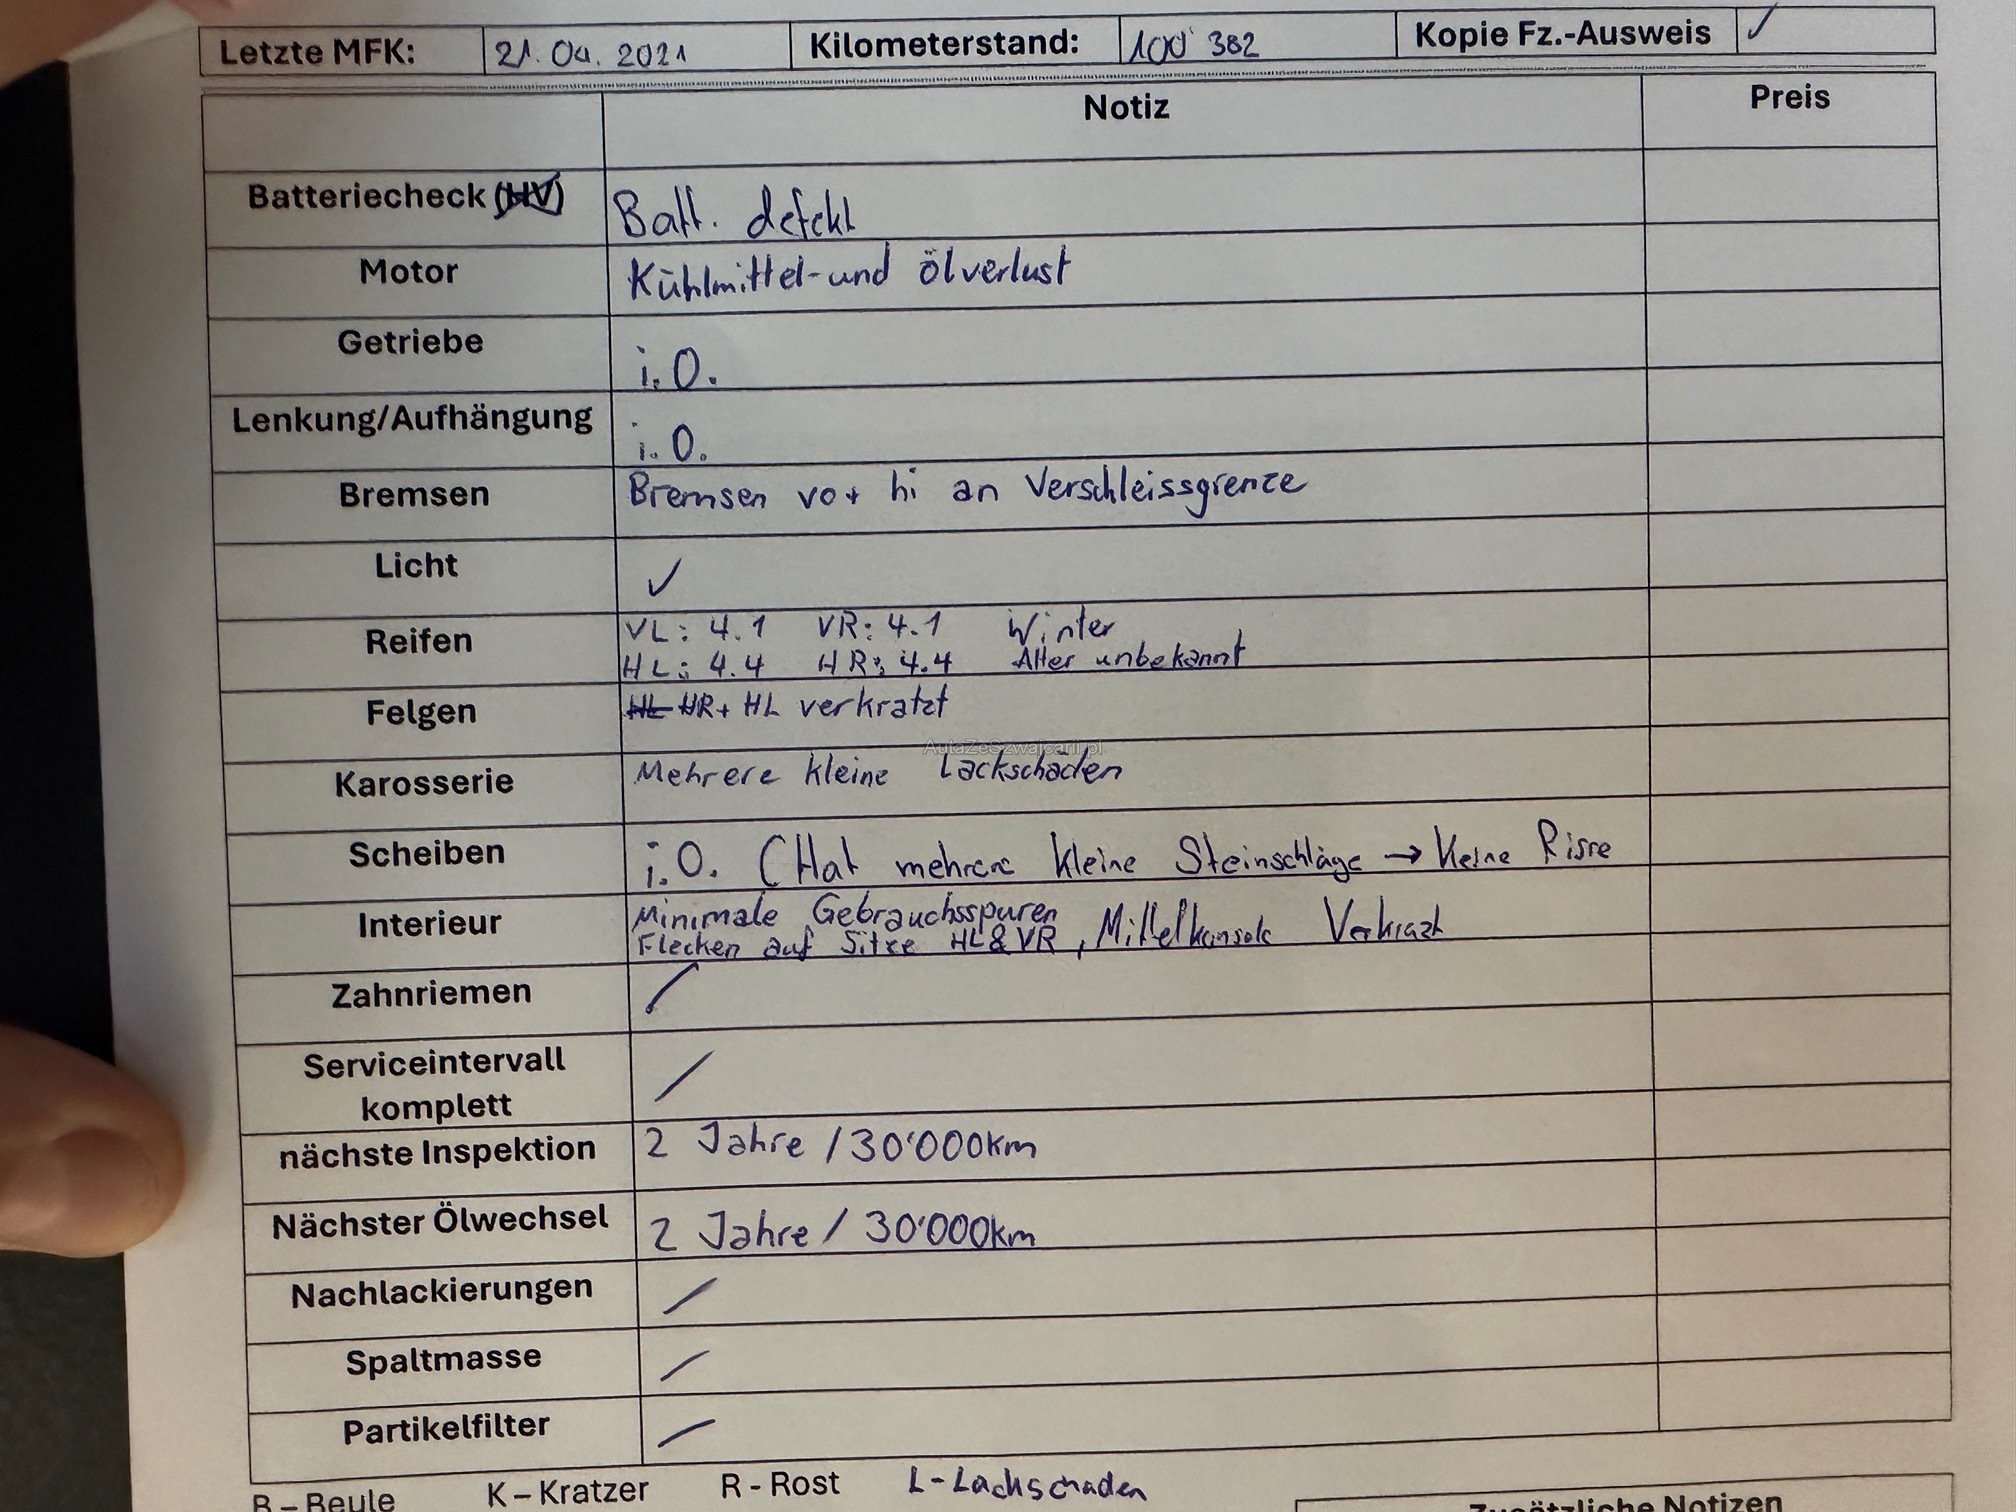 Letzte MFK: 21.04.2021 Kilometerstand: 100'382 Kopie Fz.-Ausweis ✓
Notiz Preis
Batteriecheck (HV) Batt. defekt
Motor Kühlmittel- und ölverlust
Getriebe i.O.
Lenkung/Aufhängung i.O.
Bremsen Bremsen vo+ hi an Verschleissgrenze
Licht ✓
Reifen VL: 4.1 VR: 4.1 Winter
HL: 4.4 HR: 4.4 Alter unbekannt
Felgen HL HR+ HL verkratzt
AutaZeSzwajcarii.pl
Karosserie Mehrere kleine Lackschäden
Scheiben i.O. (Hat mehrere kleine Steinschläge → Keine Risse
Interieur Minimale Gebrauchsspuren
Flecken auf Sitze HL & VR, Mittelkonsole Verkrazt
Zahnriemen /
Serviceintervall
komplett /
nächste Inspektion 2 Jahre / 30'000km
Nächster Ölwechsel 2 Jahre / 30'000km
Nachlackierungen /
Spaltmasse /
Partikelfilter /
B – Beule K – Kratzer R - Rost L - Lackschaden
Zusätzliche Notizen